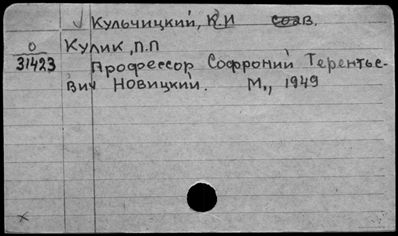 √ Кульчицкий, К И соав.
0 Кулик, П.П
31423 Профессор Софроний Терентье-
вич Новицкий. М., 1949
x